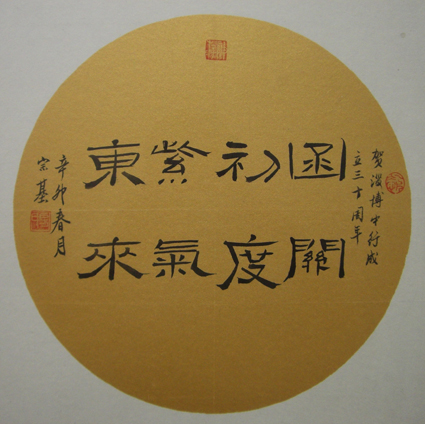 賀淄博中行成
立三十周年
函關
初度
紫氣
東來
辛卯春月
宗基